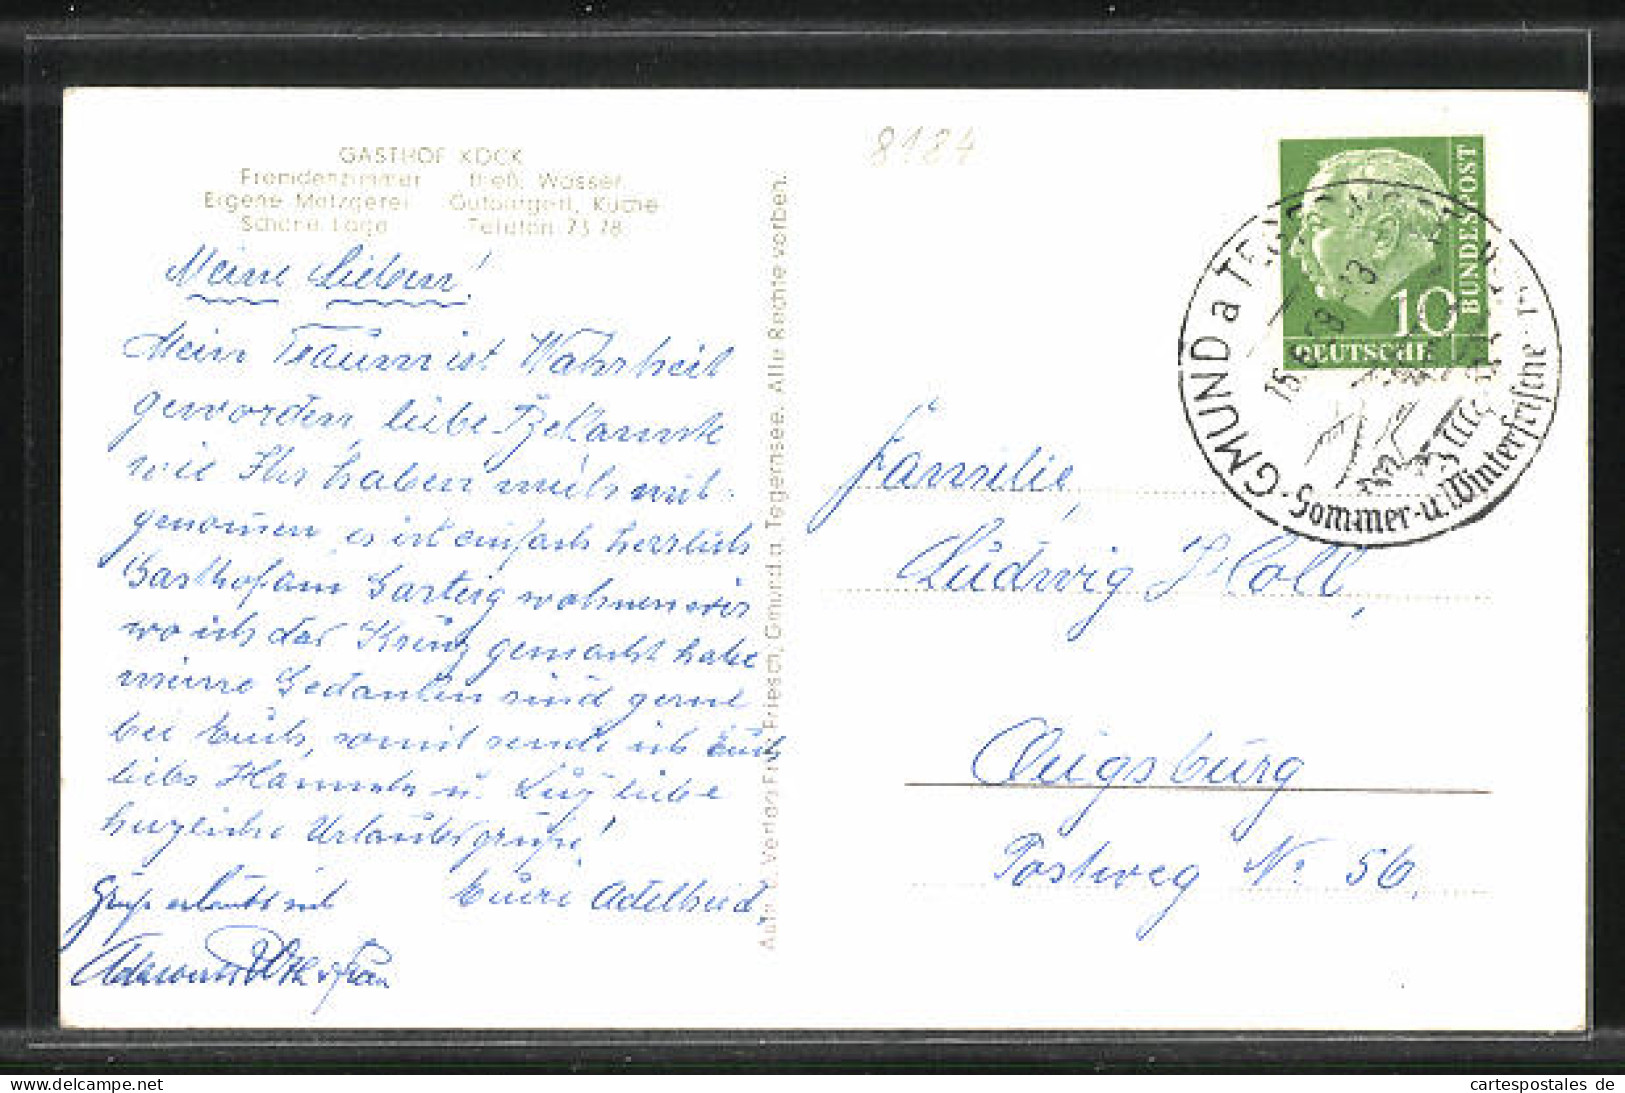 GASTHOF KÖCK
Fremdenzimmer fließ. Wasser
Eigene Metzgerei Gutbürgerl. Küche
Schöne Lage Telefon 73 78
8184
Meine Lieben!
Mein Traum ist Wahrheit
geworden, liebe Bekannte
wie Ihr haben mich mit-
genommen, es ist einfach herrlich
Gasthof am Gasteig wohnen wir
wo ich das Kreuz gemacht habe
meine Gedanken sind gerne
bei Euch, somit sende ich Euch
liebs Hannerle u. Luggi liebe
herzliche Urlaubsgrüße!
Eure Adelheid,
Gruß erlaubt sich
u. Frau
Auf. u. Verlag Fritz Friesch, Gmund a. Tegernsee. Alle Rechte vorbeh.
DEUTSCHE BUNDESPOST
10
GMUND a TEGERNSEE
Sommer- u. Winterfrische
Familie,
Ludwig Holl,
Augsburg
Postweg Nr. 56.
www.cartespostales.de
cartespostales de